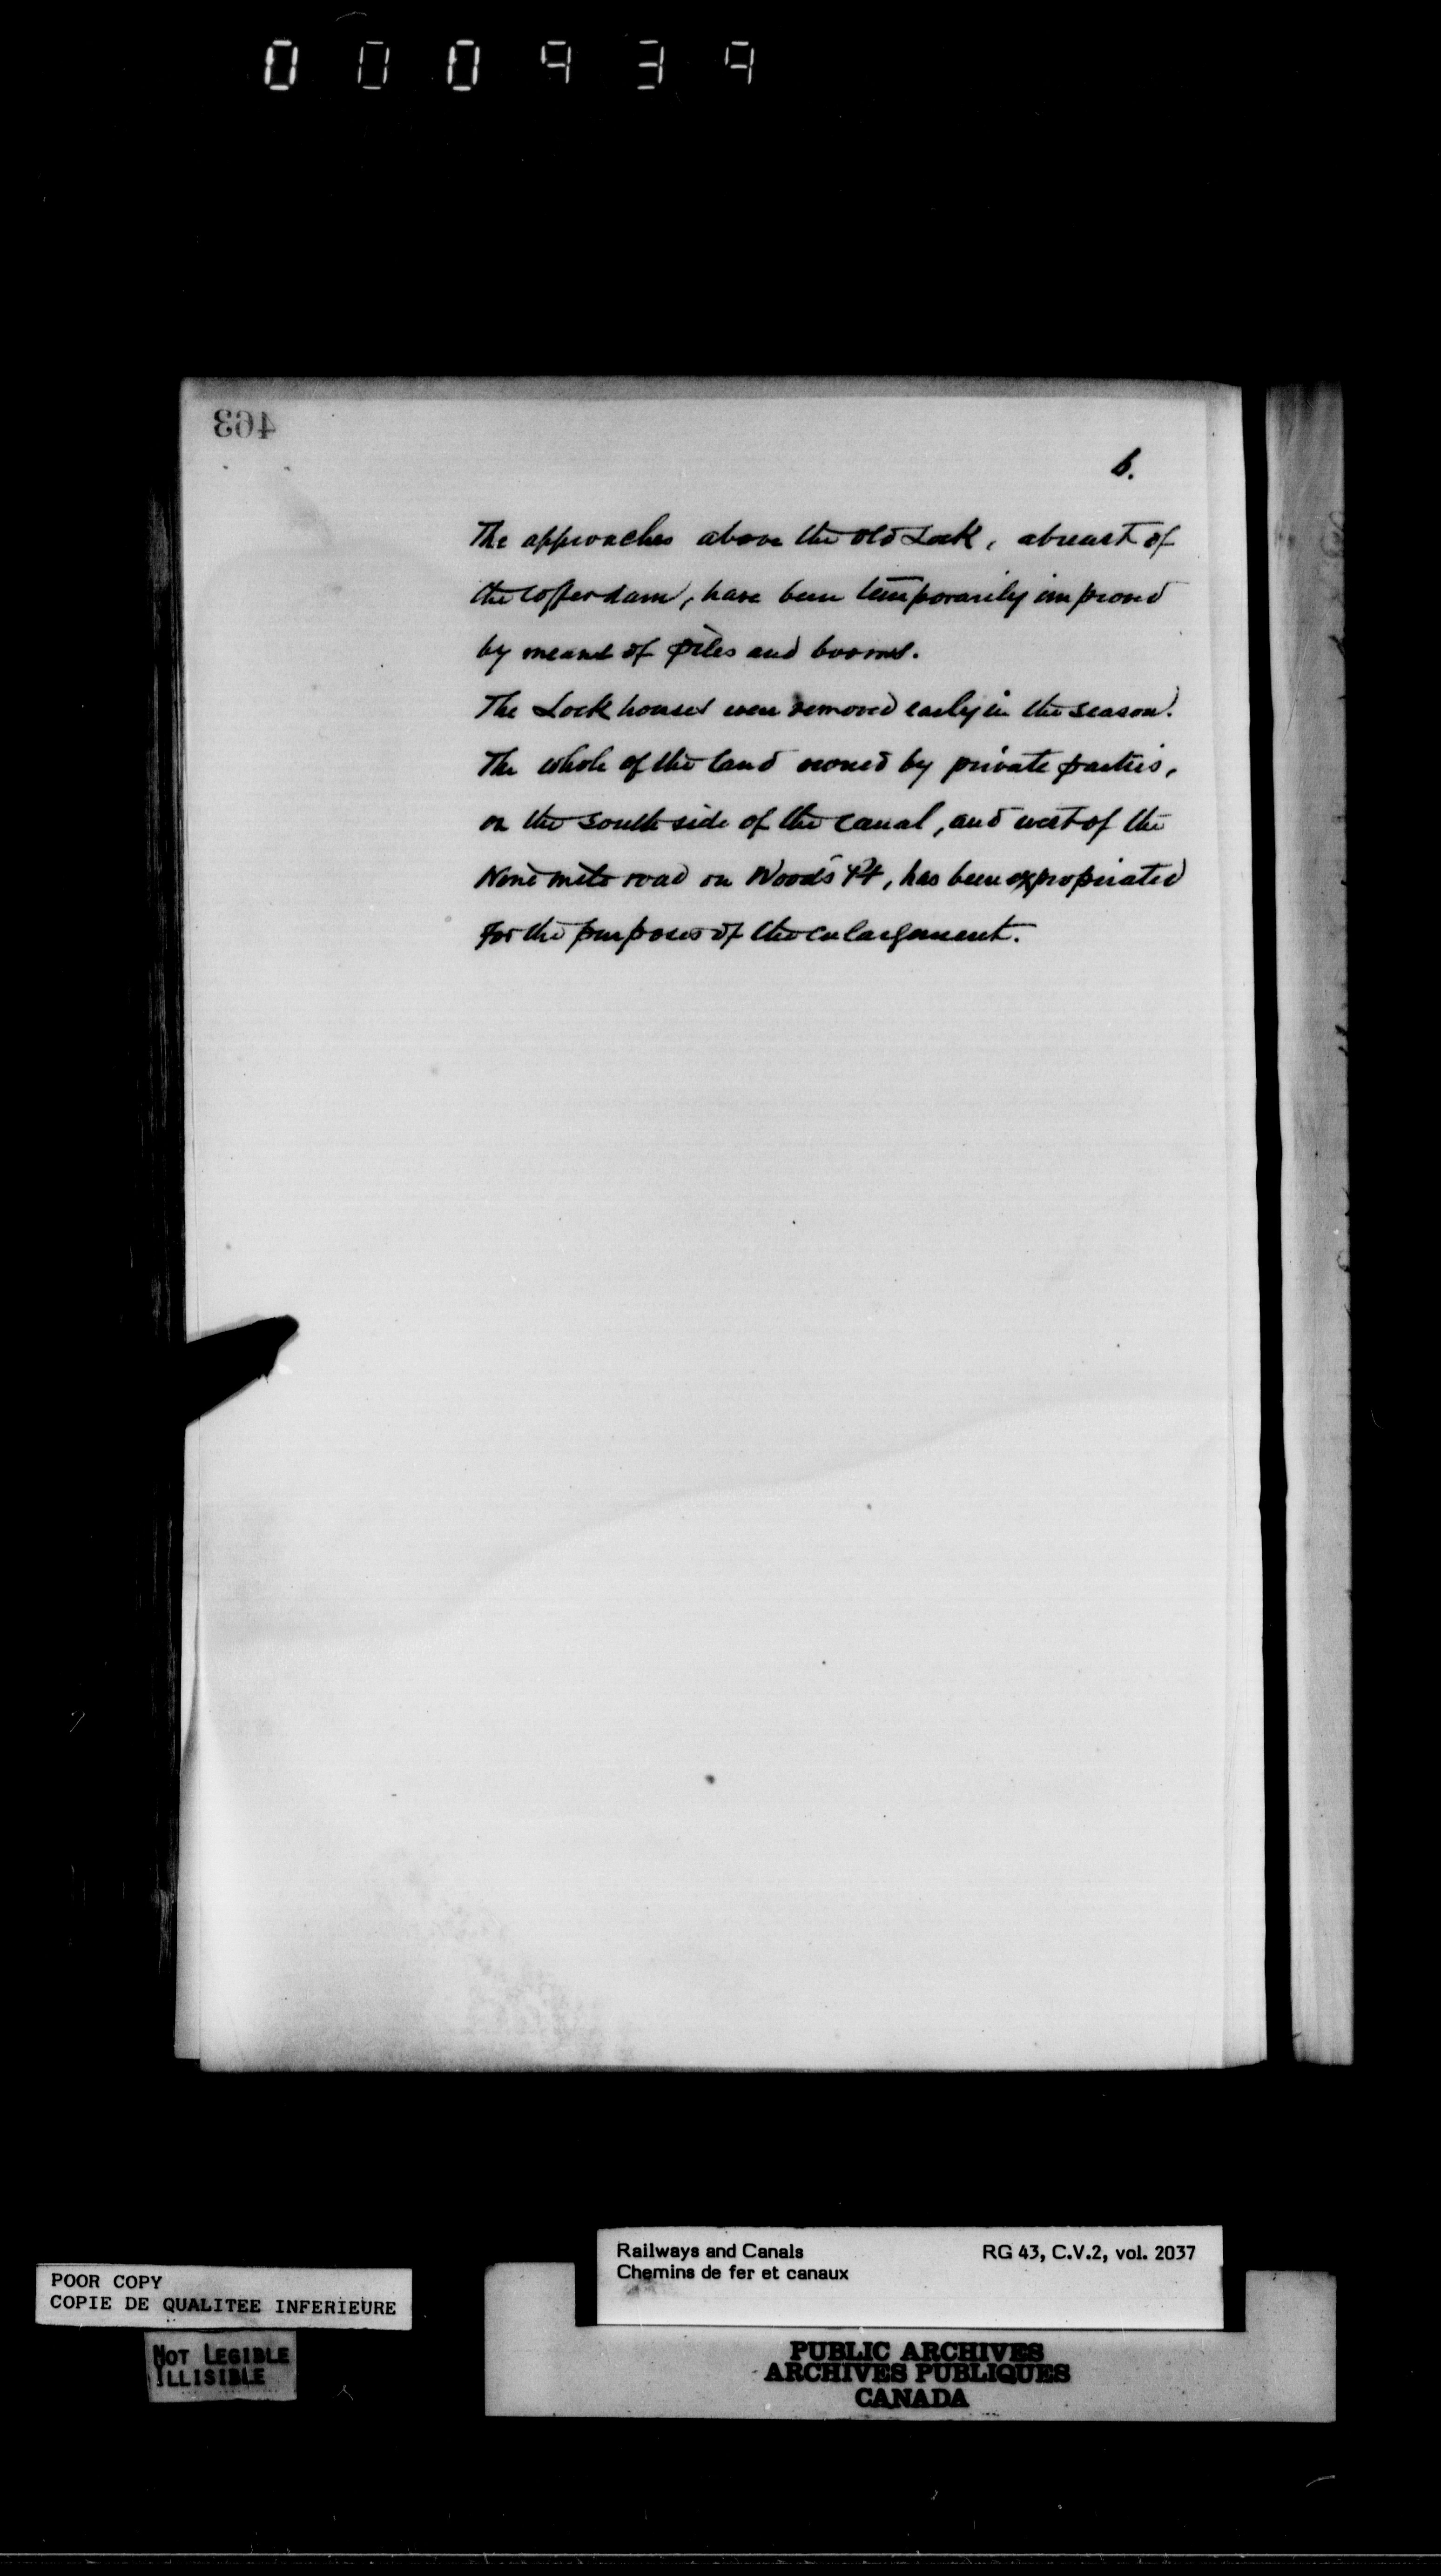 000939
463
6.
The approaches above the old Lock, abreast of
the cofferdam, have been temporarily improved
by means of piles and booms.
The Lock houses were removed early in the season.
The whole of the land owned by private parties,
on the south side of the canal, and west of the
Nine mile road on Wood's Pt, has been expropriated
for the purposes of the enlargement.
Railways and Canals RG 43, C.V.2, vol. 2037
Chemins de fer et canaux
POOR COPY
COPIE DE QUALITEE INFERIEURE
NOT LEGIBLE
ILLISIBLE
PUBLIC ARCHIVES
ARCHIVES PUBLIQUES
CANADA